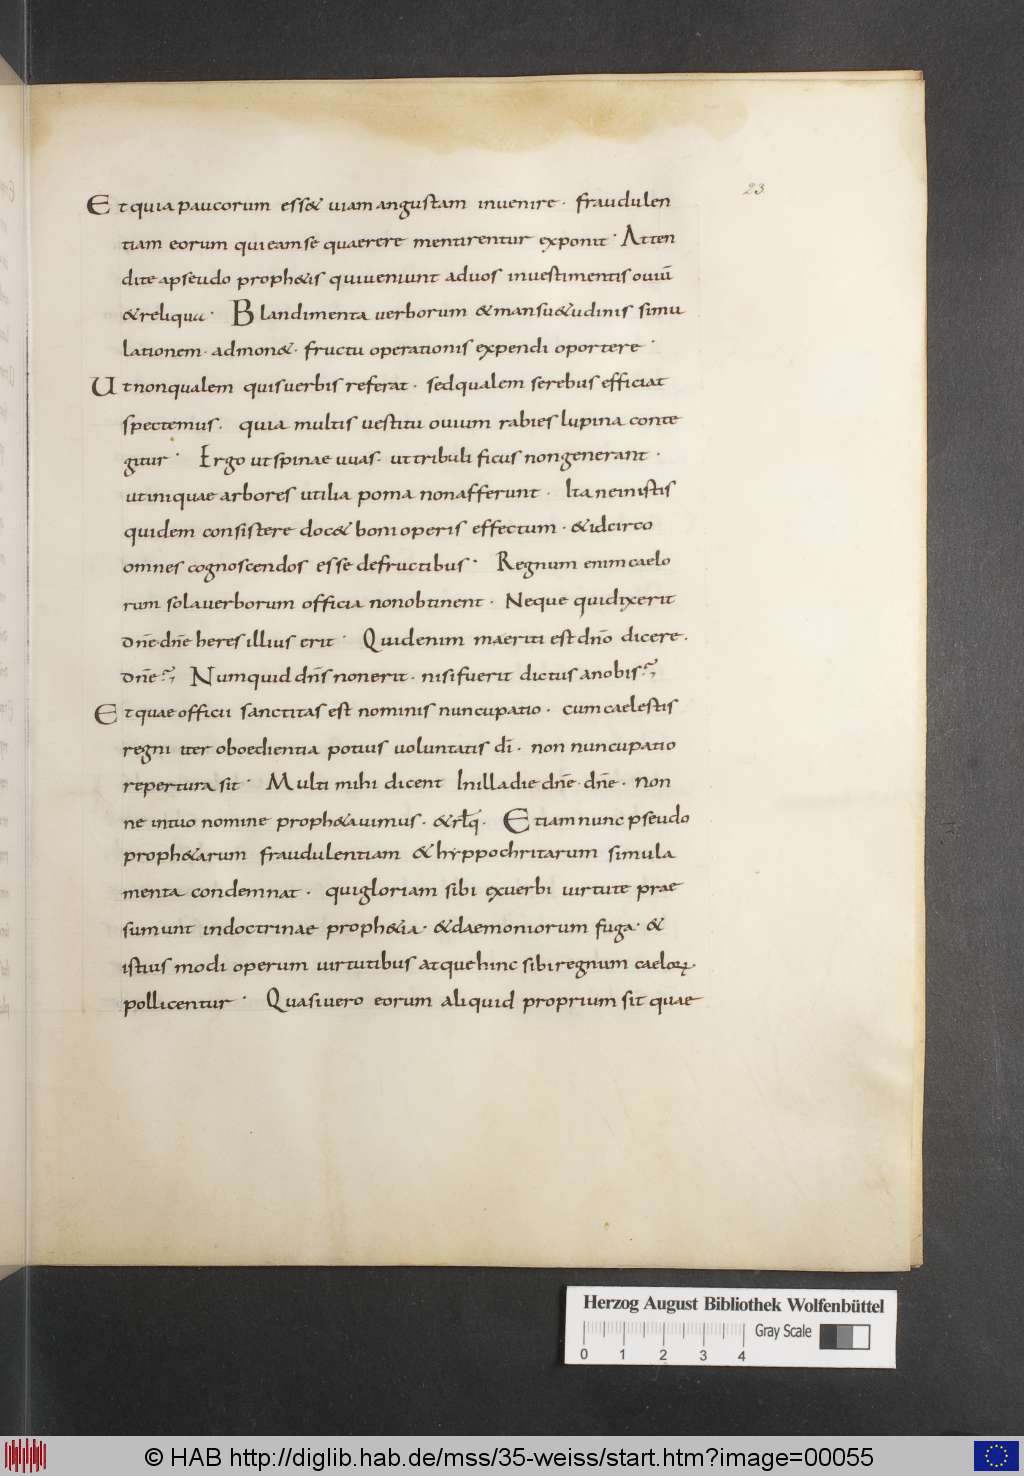 23
Et quia paucorum esset uiam angustam inuenire · fraudulen
tiam eorum qui eam se quaerere mentirentur exponit · Atten
dite a pseudo prophetis qui ueniunt ad uos in uestimentis ouiū
& reliqua · Blandimenta uerborum & mansu&udinis simu
lationem · admon& · fructu operationis expendi oportere ·
Ut non qualem quis uerbis referat · sed qualem se rebus efficiat
spectemus · quia multis uestitu ouium rabies lupina conte
gitur · Ergo ut spinae uuas · ut tribuli ficus non generant ·
ut iniquae arbores utilia poma non afferunt · Ita ne in istis
quidem consistere doc& boni operis effectum · & idcirco
omnes cognoscendos esse de fructibus · Regnum enim caelo
rum sola uerborum officia non obtinent · Neque qui dixerit
dn̄e dn̄e heres illius erit · Quid enim maeriti est dn̄o dicere ·
dn̄e? Numquid dn̄s non erit · nisi fuerit dictus a nobis?
Et quae officii sanctitas est nominis nuncupatio · cum caelestis
regni iter oboedientia potius uoluntatis dī · non nuncupatio
repertura sit · Multi mihi dicent In illa die dn̄e · dn̄e · Non
ne in tuo nomine proph&auimus · & rlq̄ · Etiam nunc pseudo
proph&arum fraudulentiam & hyppochritarum simula
menta condemnat · qui gloriam sibi ex uerbi uirtute prae
sumunt in doctrinae proph&ia · & daemoniorum fuga · &
istius modi operum uirtutibus atque hinc sibi regnum caeloꝝ ·
pollicentur · Quasi uero eorum aliquid proprium sit quae
Herzog August Bibliothek Wolfenbüttel
Gray Scale
0 1 2 3 4
© HAB http://diglib.hab.de/mss/35-weiss/start.htm?image=00055